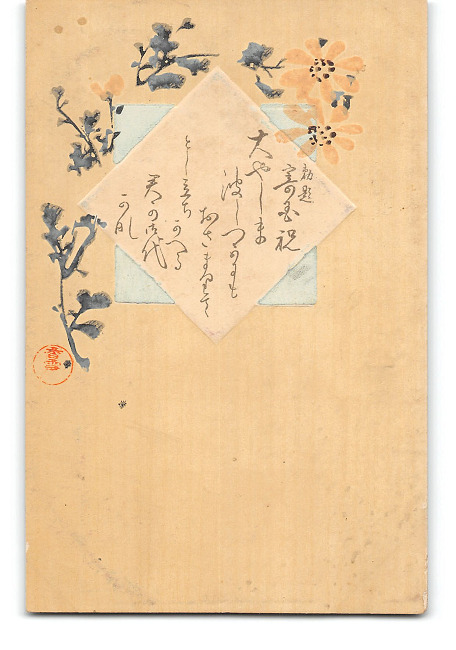 勅題
寄国祝
大やしま
波しつかにも
おさまりて
とし立ち
かへる
君の御代
かな